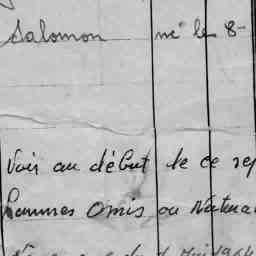 Salomon né le 8-
Voir au début de ce reg
hommes Omis ou Natura